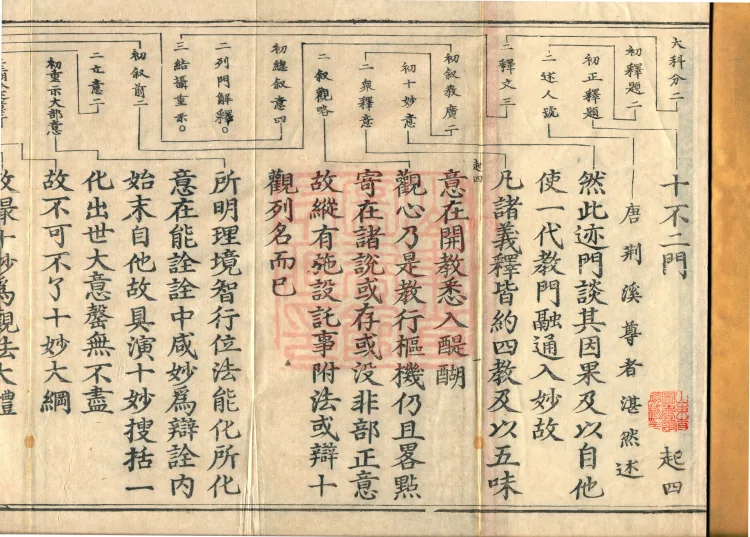 大科分二
初釋題二
初正釋題
二述人號
二釋文三
初叙教廣二
初十妙意
二衆釋意
二叙觀略
初總叙意四
二列門解釋。
三結攝重示。
初叙前二
二立意二
初重示大部意
十不二門
起四
唐荆溪尊者湛然述
然此迹門談其因果及以自他
使一代教門融通入妙故
起四
凡諸義釋皆約四教及以五味
意在開教悉入醍醐
觀心乃是教行樞機仍且畧點
寄在諸說或存或没非部正意
故縱有施設託事附法或辯十
觀列名而已
所明理境智行位法能化所化
意在能詮詮中咸妙爲辯詮内
始末自他故具演十妙搜括一
化出世大意罄無不盡
故不可不了十妙大綱
故最十妙爲觀法大體